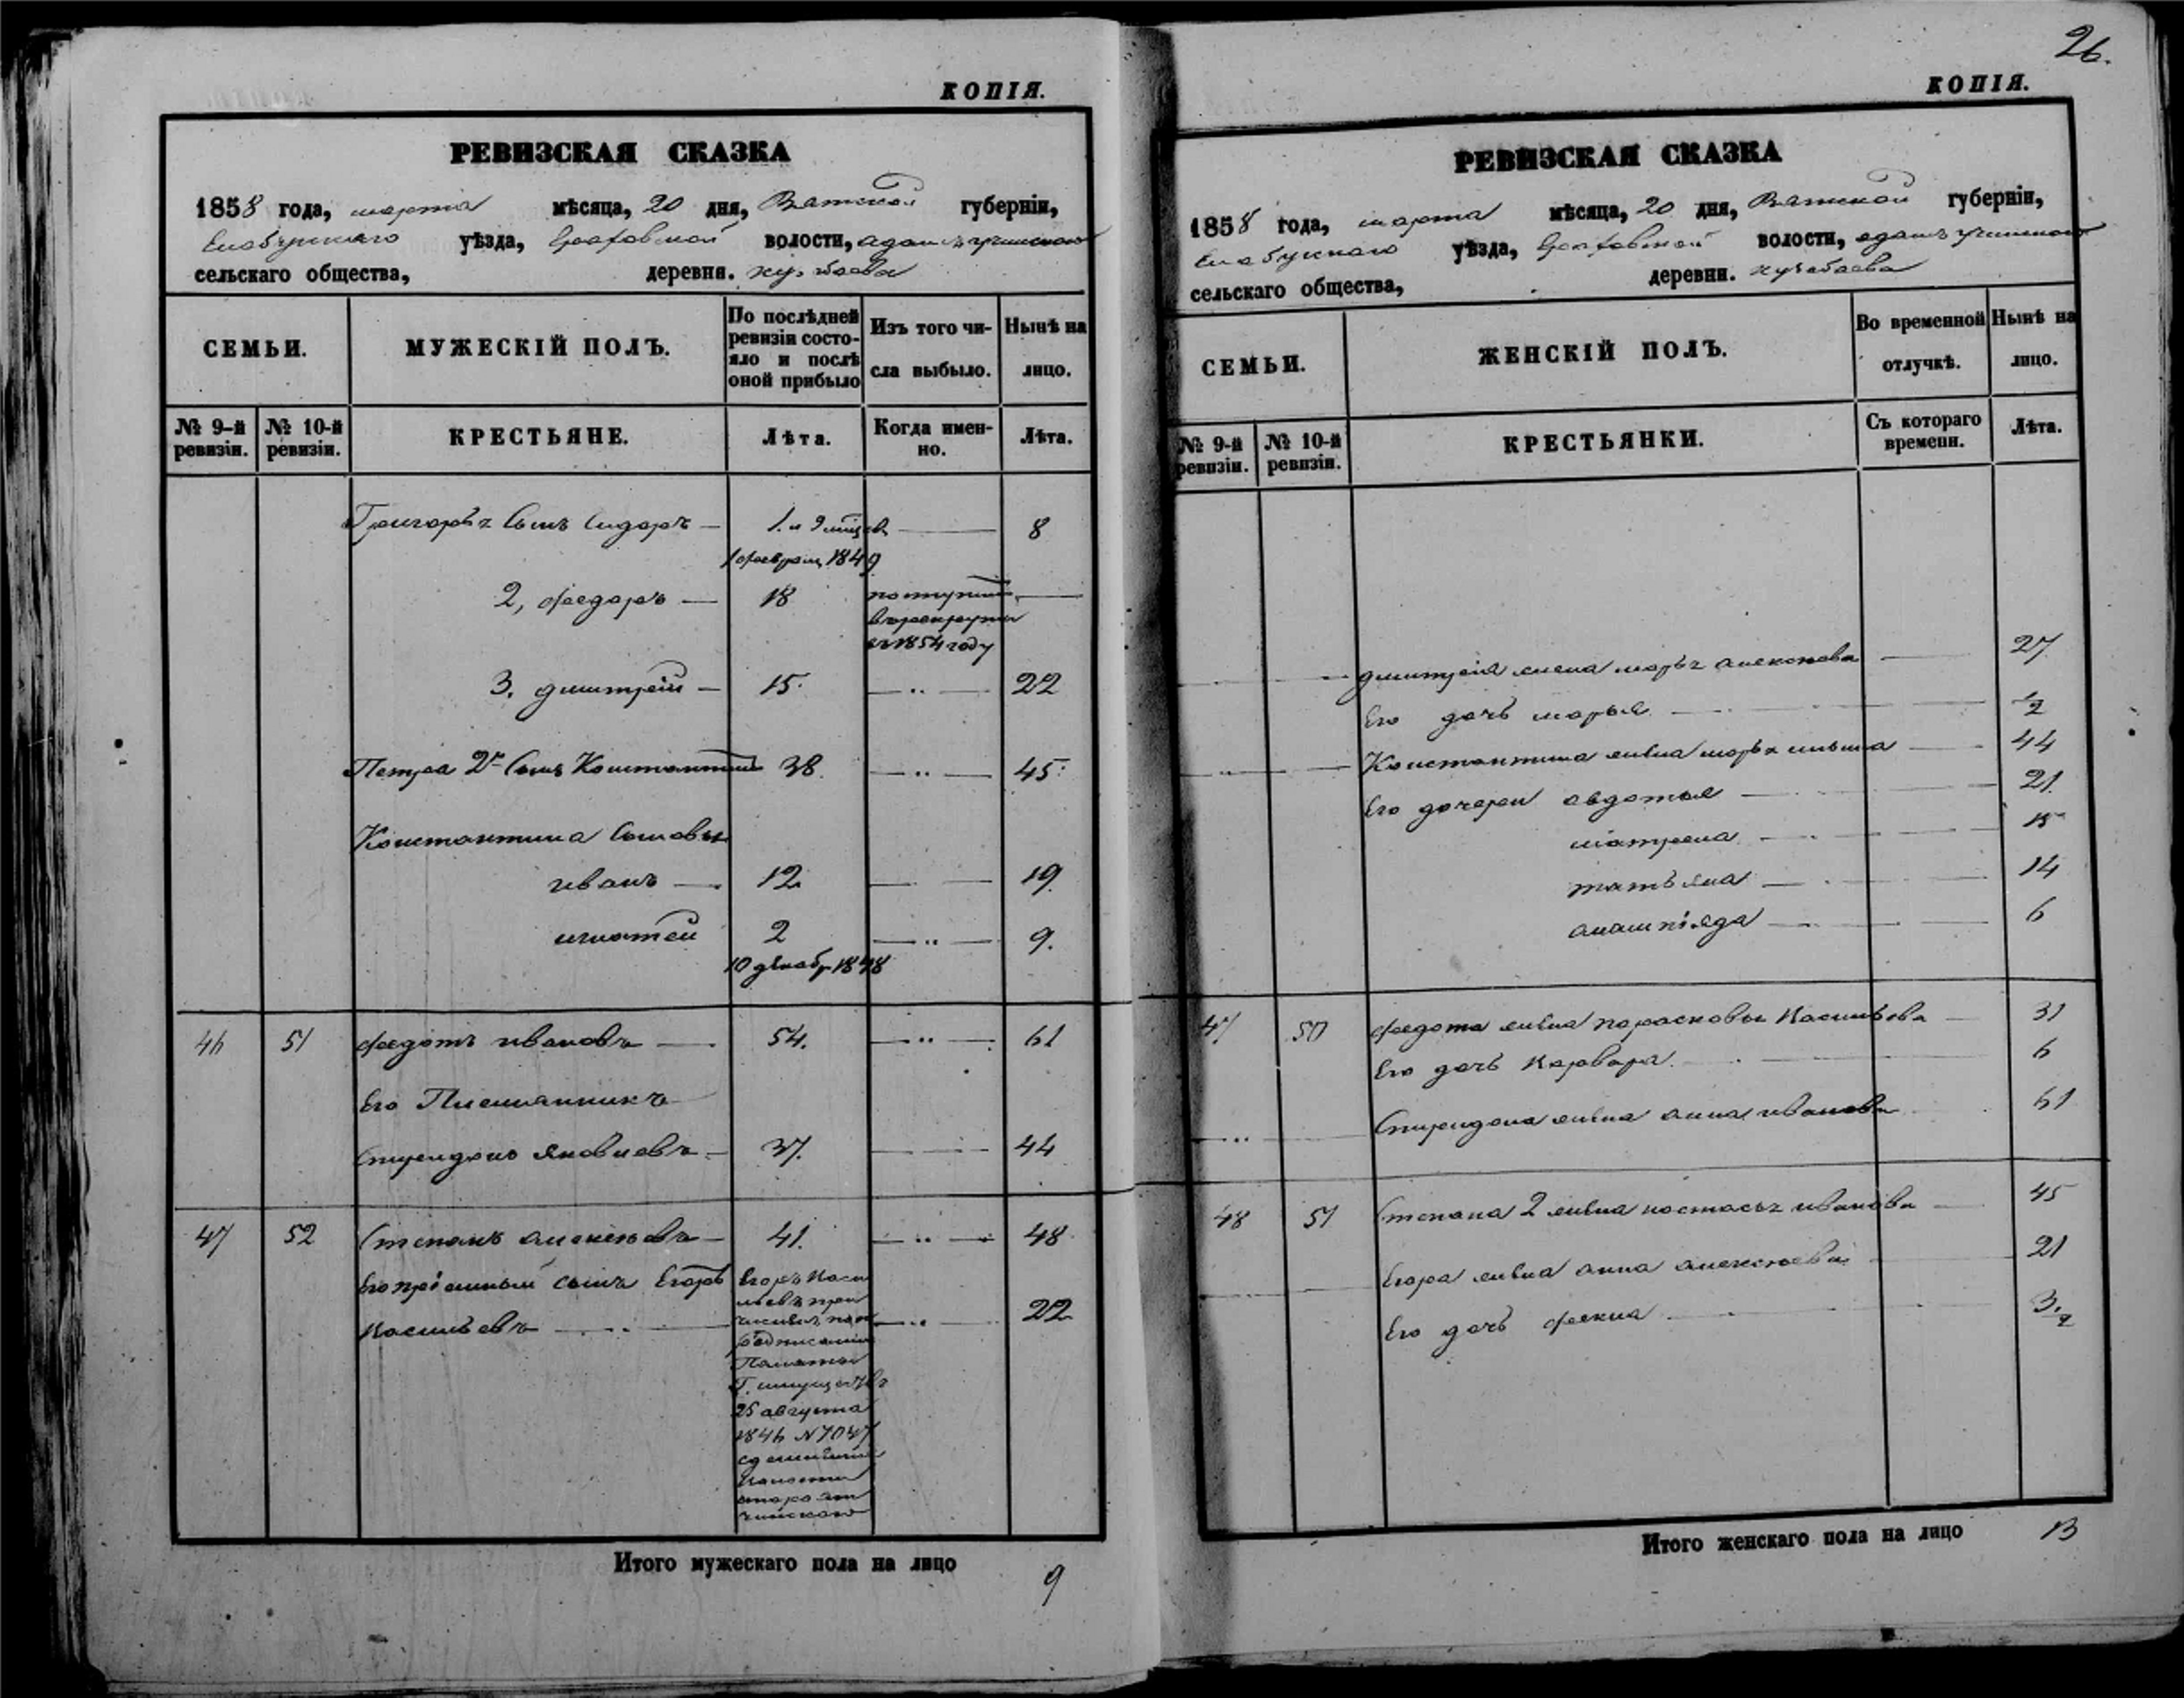 КОПІЯ.
РЕВИЗСКАЯ СКАЗКА
1858 года, марта мѣсяца, 20 дня, Вятской губерніи,
Елабужскаго уѣзда, Граховской волости,
сельскаго общества, деревня.
СЕМЬИ.
МУЖЕСКІЙ ПОЛЪ.
По послѣдней ревизіи состояло и послѣ оной прибыло
Изъ того числа выбыло.
Нынѣ на лицо.
№ 9-й ревизіи.
№ 10-й ревизіи.
КРЕСТЬЯНЕ.
Лѣта.
Когда именно.
Лѣта.
Григорья Сынъ Сидоръ — 1. и 9 мѣсяцев — 8
1 февраля 1849
2, федоръ — 18 поступилъ
в рекруты
въ 1854 году
3. дмитрій — 15. — " — 22
Петра 2й Сынъ Константинъ 38. — " — 45.
Константина Сыновья
иванъ — 12 — — 19.
игнатей 2 — " — 9.
10 декабр 1848
46 51 федотъ ивановъ — 54. — " — 61
Его Племянникъ
Спиридонъ Яковлевъ — 37. — — 44
47 52 Степанъ алексѣевъ — 41. — " — 48
Его пріемный сынъ Егоръ Егоръ Васи
Васильевъ — льевъ при — " — 22
Палаты
25 августа
1846 N 7047
Итого мужескаго пола на лицо 9
26.
КОПІЯ.
РЕВИЗСКАЯ СКАЗКА
1858 года, марта мѣсяца, 20 дня, Вятской губерніи,
Елабужскаго уѣзда, Граховской волости,
сельскаго общества, деревни.
СЕМЬИ.
ЖЕНСКІЙ ПОЛЪ.
Во временной отлучкѣ.
Нынѣ на лицо.
№ 9-й ревизіи.
№ 10-й ревизіи.
КРЕСТЬЯНКИ.
Съ котораго времени.
Лѣта.
дмитрія жена марья алексѣева — 27
Его дочь марья — 1/2
Константина жена марья ильина — 44
Его дочери авдотья — 21.
матрена — 15
татьяна — 14
6
47 50 федота жена парасковья Васильева — 31
Его дочь Варвара. — 6
Спиридона жена анна иванова 61
48 51 Степана 2 жена настасья иванова — 45
Егора жена анна алексѣева — 21
Его дочь фекла —
Итого женскаго пола на лицо 13